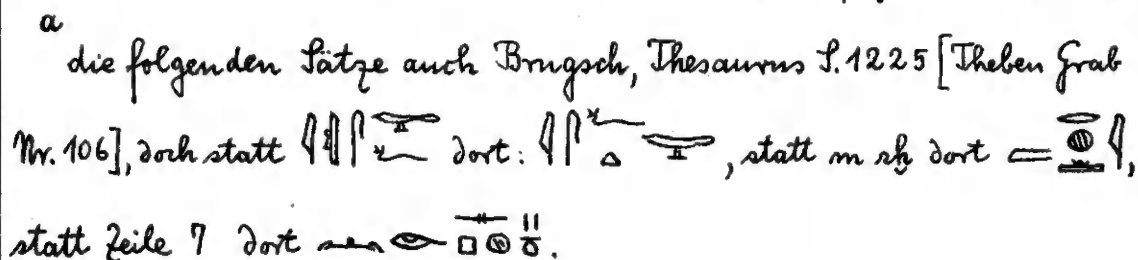 a
die folgenden Sätze auch Brugsch, Thesaurus S. 1225 [Theben Grab
Nr. 106], doch statt dort: , statt m rḫ dort ,
statt Zeile 7 dort .